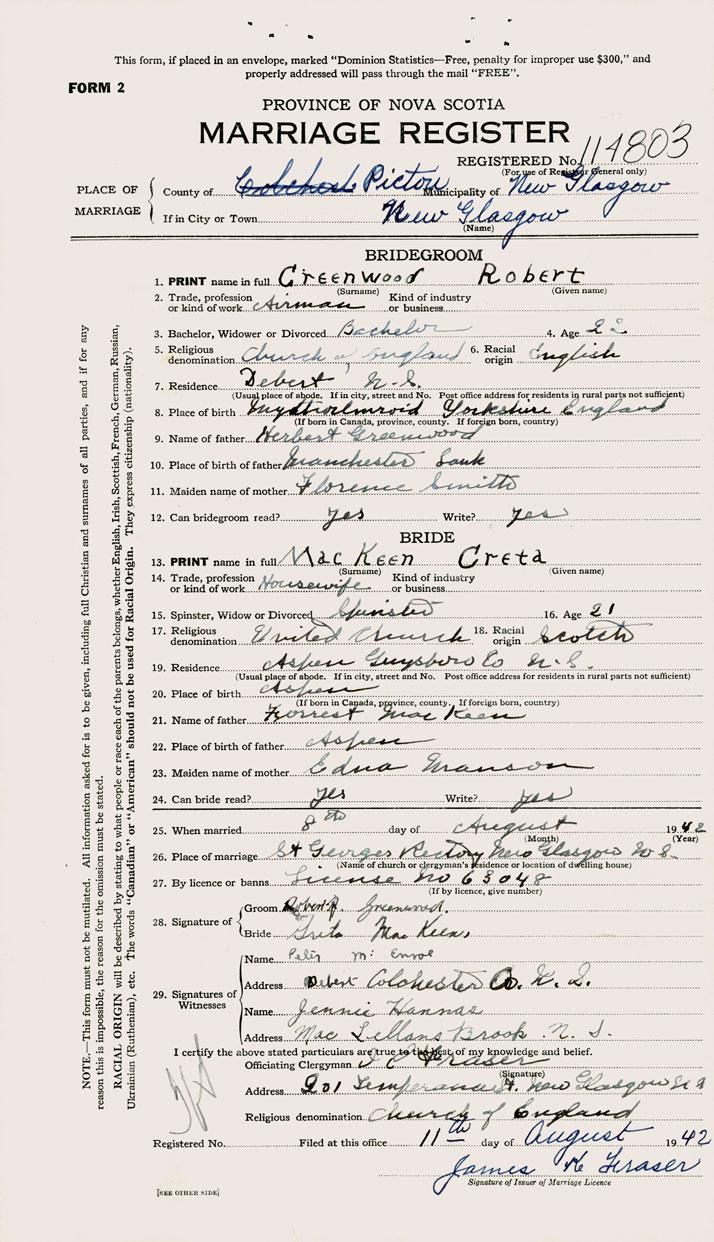 This form, if placed in an envelope, marked "Dominion Statistics—Free, penalty for improper use $300," and
properly addressed will pass through the mail "FREE".
FORM 2
PROVINCE OF NOVA SCOTIA
MARRIAGE REGISTER
REGISTERED No. 114803
(For use of Registrar General only)
PLACE OF MARRIAGE
County of Colchest Pictou Municipality of New Glasgow
If in City or Town New Glasgow
(Name)
BRIDEGROOM
1. PRINT name in full Greenwood Robert
(Surname) (Given name)
2. Trade, profession or kind of work Airman Kind of industry or business
3. Bachelor, Widower or Divorced Bachelor 4. Age 22
5. Religious denomination Church of England 6. Racial origin English
7. Residence Debert N.S.
(Usual place of abode. If in city, street and No. Post office address for residents in rural parts not sufficient)
8. Place of birth Mytholmroid Yorkshire England
(If born in Canada, province, county. If foreign born, country)
9. Name of father Herbert Greenwood
10. Place of birth of father Manchester
11. Maiden name of mother Florence Smith
12. Can bridegroom read? yes Write? yes
BRIDE
13. PRINT name in full Mac Keen Greta
(Surname) (Given name)
14. Trade, profession or kind of work Housewife Kind of industry or business
15. Spinster, Widow or Divorced Spinster 16. Age 21
17. Religious denomination United Church 18. Racial origin Scotch
19. Residence Aspen Guysboro Co N.S.
(Usual place of abode. If in city, street and No. Post office address for residents in rural parts not sufficient)
20. Place of birth Aspen
(If born in Canada, province, county. If foreign born, country)
21. Name of father Forrest Mac Keen
22. Place of birth of father Aspen
23. Maiden name of mother Edna Manson
24. Can bride read? yes Write? yes
25. When married 8th day of August 1942
(Month) (Year)
26. Place of marriage St Georges Rectory New Glasgow N.S.
(Name of church or clergyman's residence or location of dwelling house)
27. By licence or banns License No 63048
(If by licence, give number)
28. Signature of
Groom Robert Greenwood.
Bride Greta Mac Keen,
29. Signatures of Witnesses
Name Peter Mc
Address Debert Colchester Co. N.S.
Name Jennie Hannas
Address Mac Lellans Brook N.S.
I certify the above stated particulars are true to the best of my knowledge and belief.
Officiating Clergyman Fraser
(Signature)
Address 201 Temperance St. New Glasgow N S
Religious denomination Church of England
Registered No. Filed at this office 11th day of August 1942
James Fraser
Signature of Issuer of Marriage Licence
[SEE OTHER SIDE]
NOTE.—This form must not be mutilated. All information asked for is to be given, including full Christian and surnames of all parties, and if for any
reason this is impossible, the reason for the omission must be stated.
RACIAL ORIGIN will be described by stating to what people or race each of the parents belongs, whether English, Irish, Scottish, French, German, Russian,
Ukrainian (Ruthenian), etc. The words "Canadian" or "American" should not be used for Racial Origin. They express citizenship (nationality).